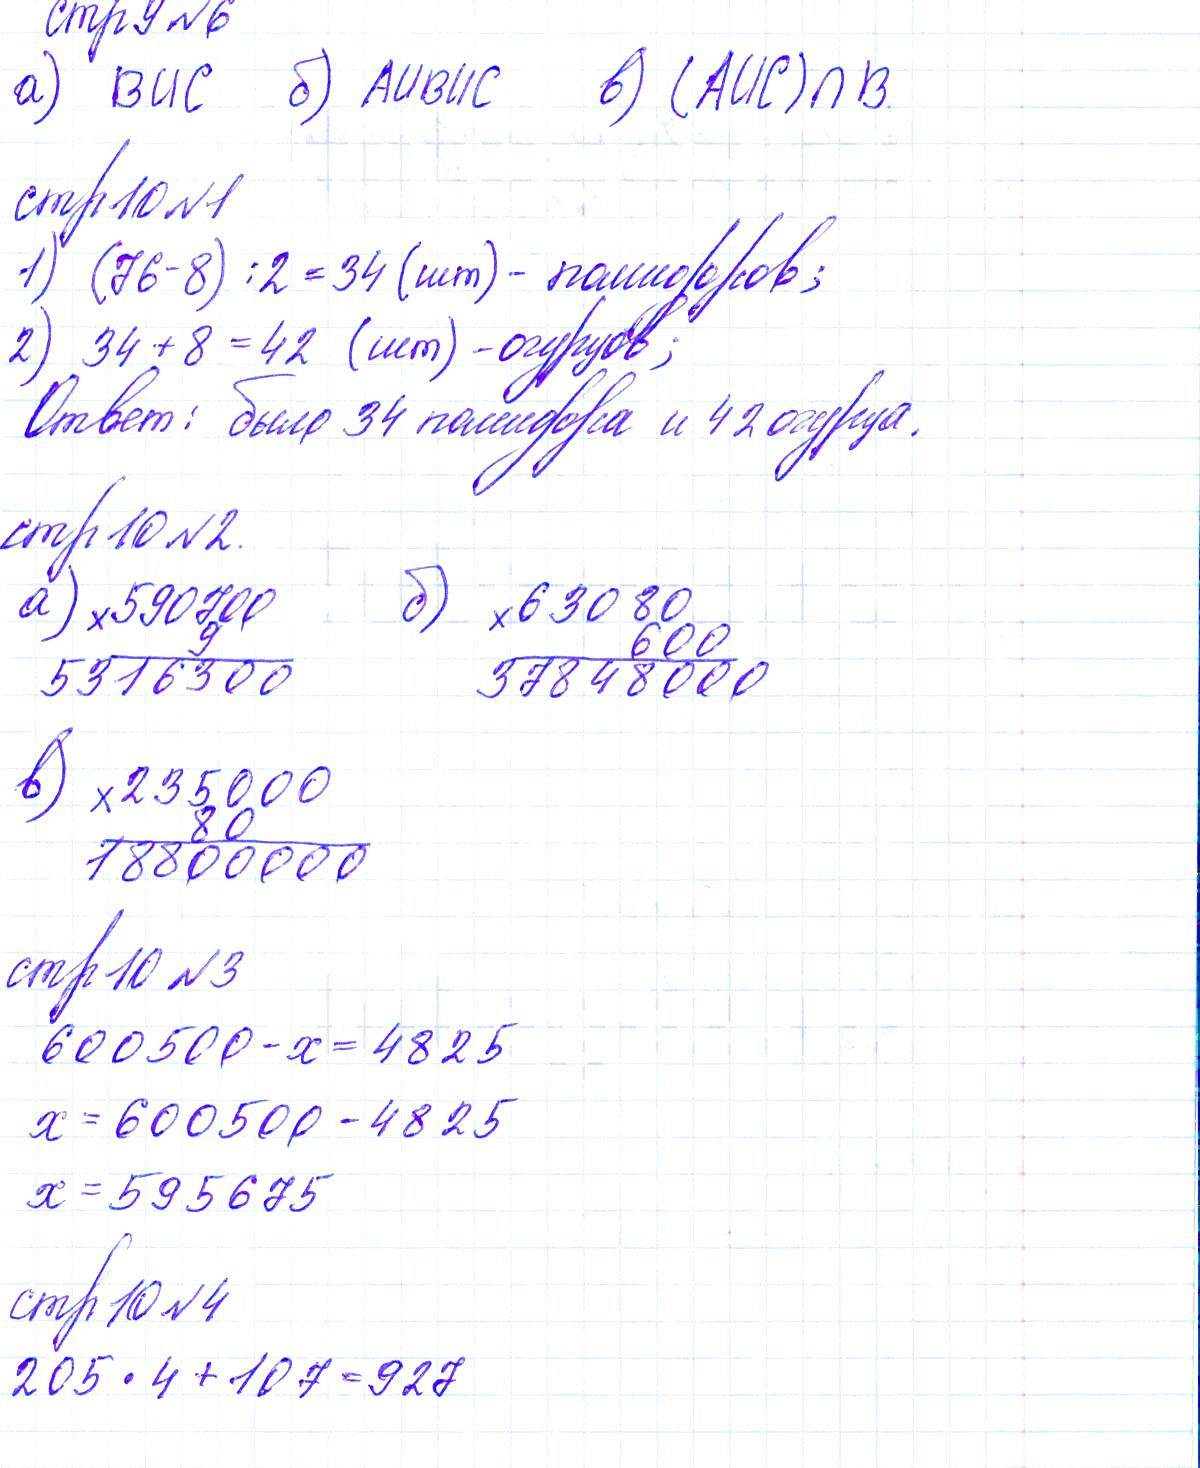 стр 9 №6
а) B∪C б) A∪B∪C в) (A∪C)∩B.
стр 10 №1
1) (76-8) :2=34 (шт) - помидоров;
2) 34+8=42 (шт) - огурцов;
Ответ: было 34 помидора и 42 огурца.
стр 10 №2.
а) х590700 б) х63080
9 600
5316300 37848000
в) х235000
80
18800000
стр 10 №3
600500-х=4825
х=600500-4825
х=595675
стр 10 №4
205·4+107=927